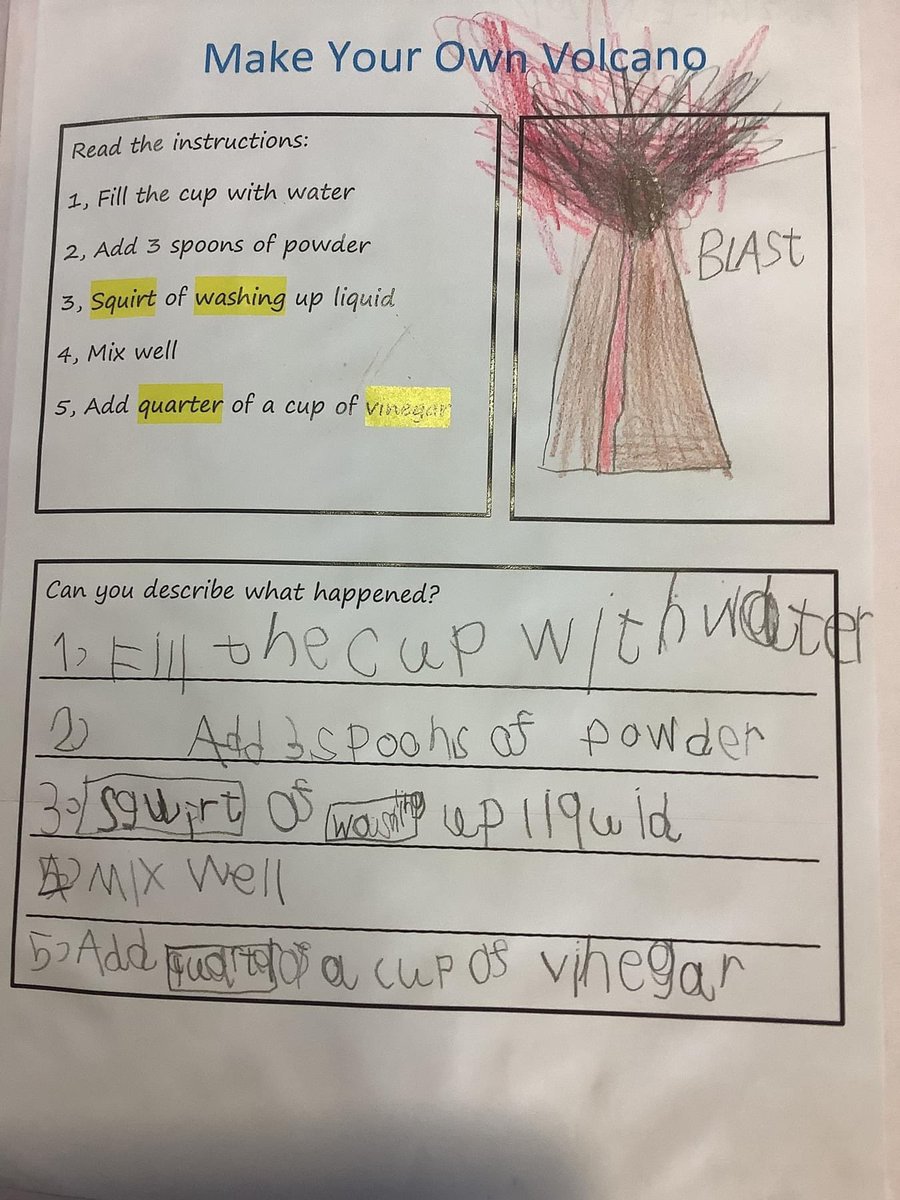 Make Your Own Volcano
Read the instructions:
1, Fill the cup with water
2, Add 3 spoons of powder
3, Squirt of washing up liquid
4, Mix well
5, Add quarter of a cup of vinegar
BLASt
Can you describe what happened?
1) Fill the cup with water
2) Add 3 spoohs of powder
3) squirt of washing up liquid
4) Mix well
5) Add quarter of a cup of vihegar